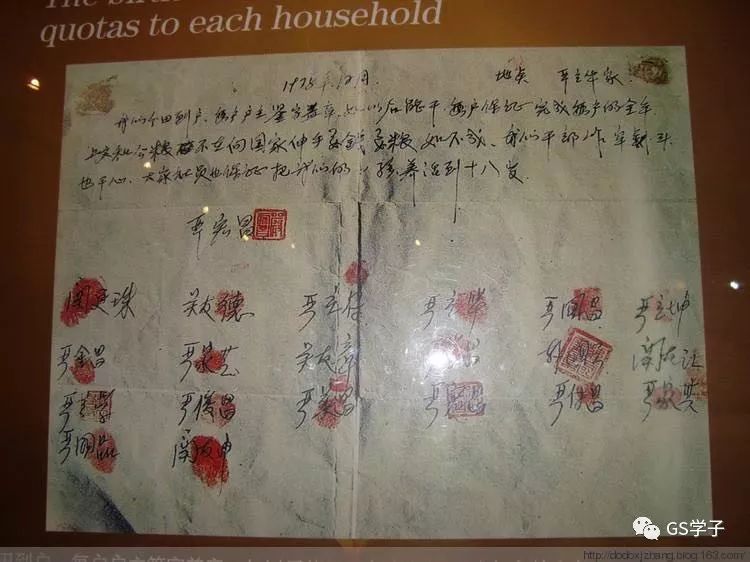 quotas to each household
1978年12月. 地点 严立华家
我们分田到户,每户户主签字盖章,如以后能干,每户保证完成每户的全年
上交和公粮 不在向国家伸手要钱要粮,如不成,我们干部作牢刹头
也干心,大家社员也保证把我们的小孩养活到十八岁.
严宏昌
关廷珠 关友德 严立符 严立华 严国昌 严立坤
严金昌 严家芝 关友章 严 昌 韩 关友江
严立学 严俊昌 严美昌 严宏昌 严付昌 严家其
严国品 关友申
GS学子
http://dodoxjzhang.blog.163.com/